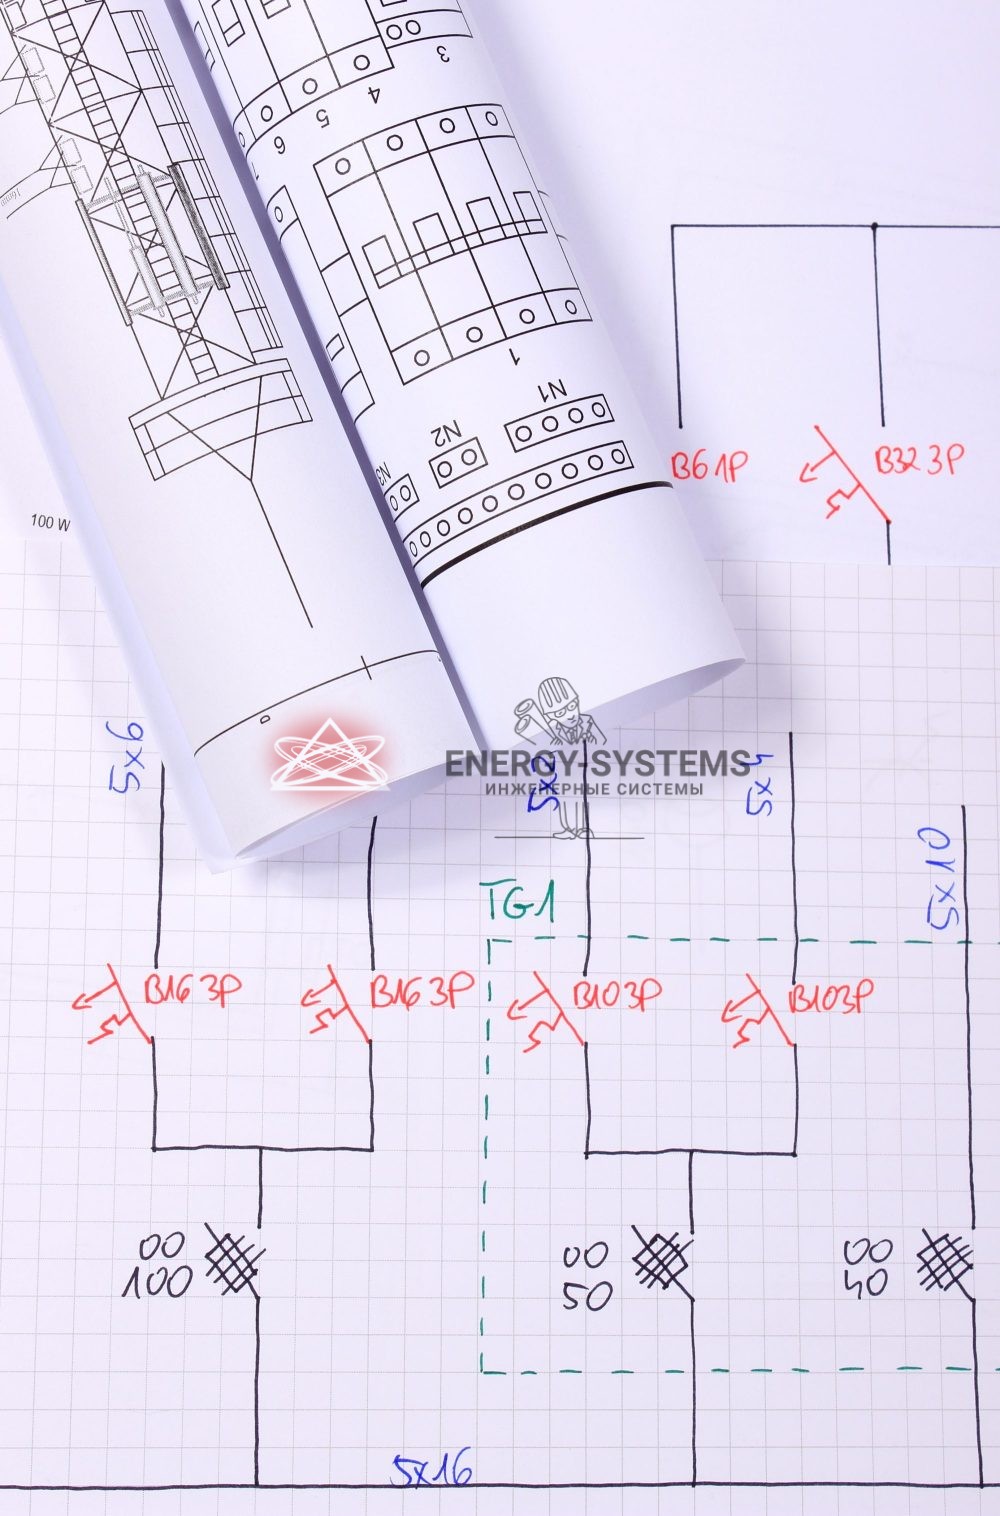 3
4
5
6
1
N1
N2
N3
B6 1P
B32 3P
100 W
5x6
ENERGY-SYSTEMS
ИНЖЕНЕРНЫЕ СИСТЕМЫ
5x4
5x10
TG1
B16 3P
B16 3P
B10 3P
B10 3P
00
100
00
50
00
40
5x16